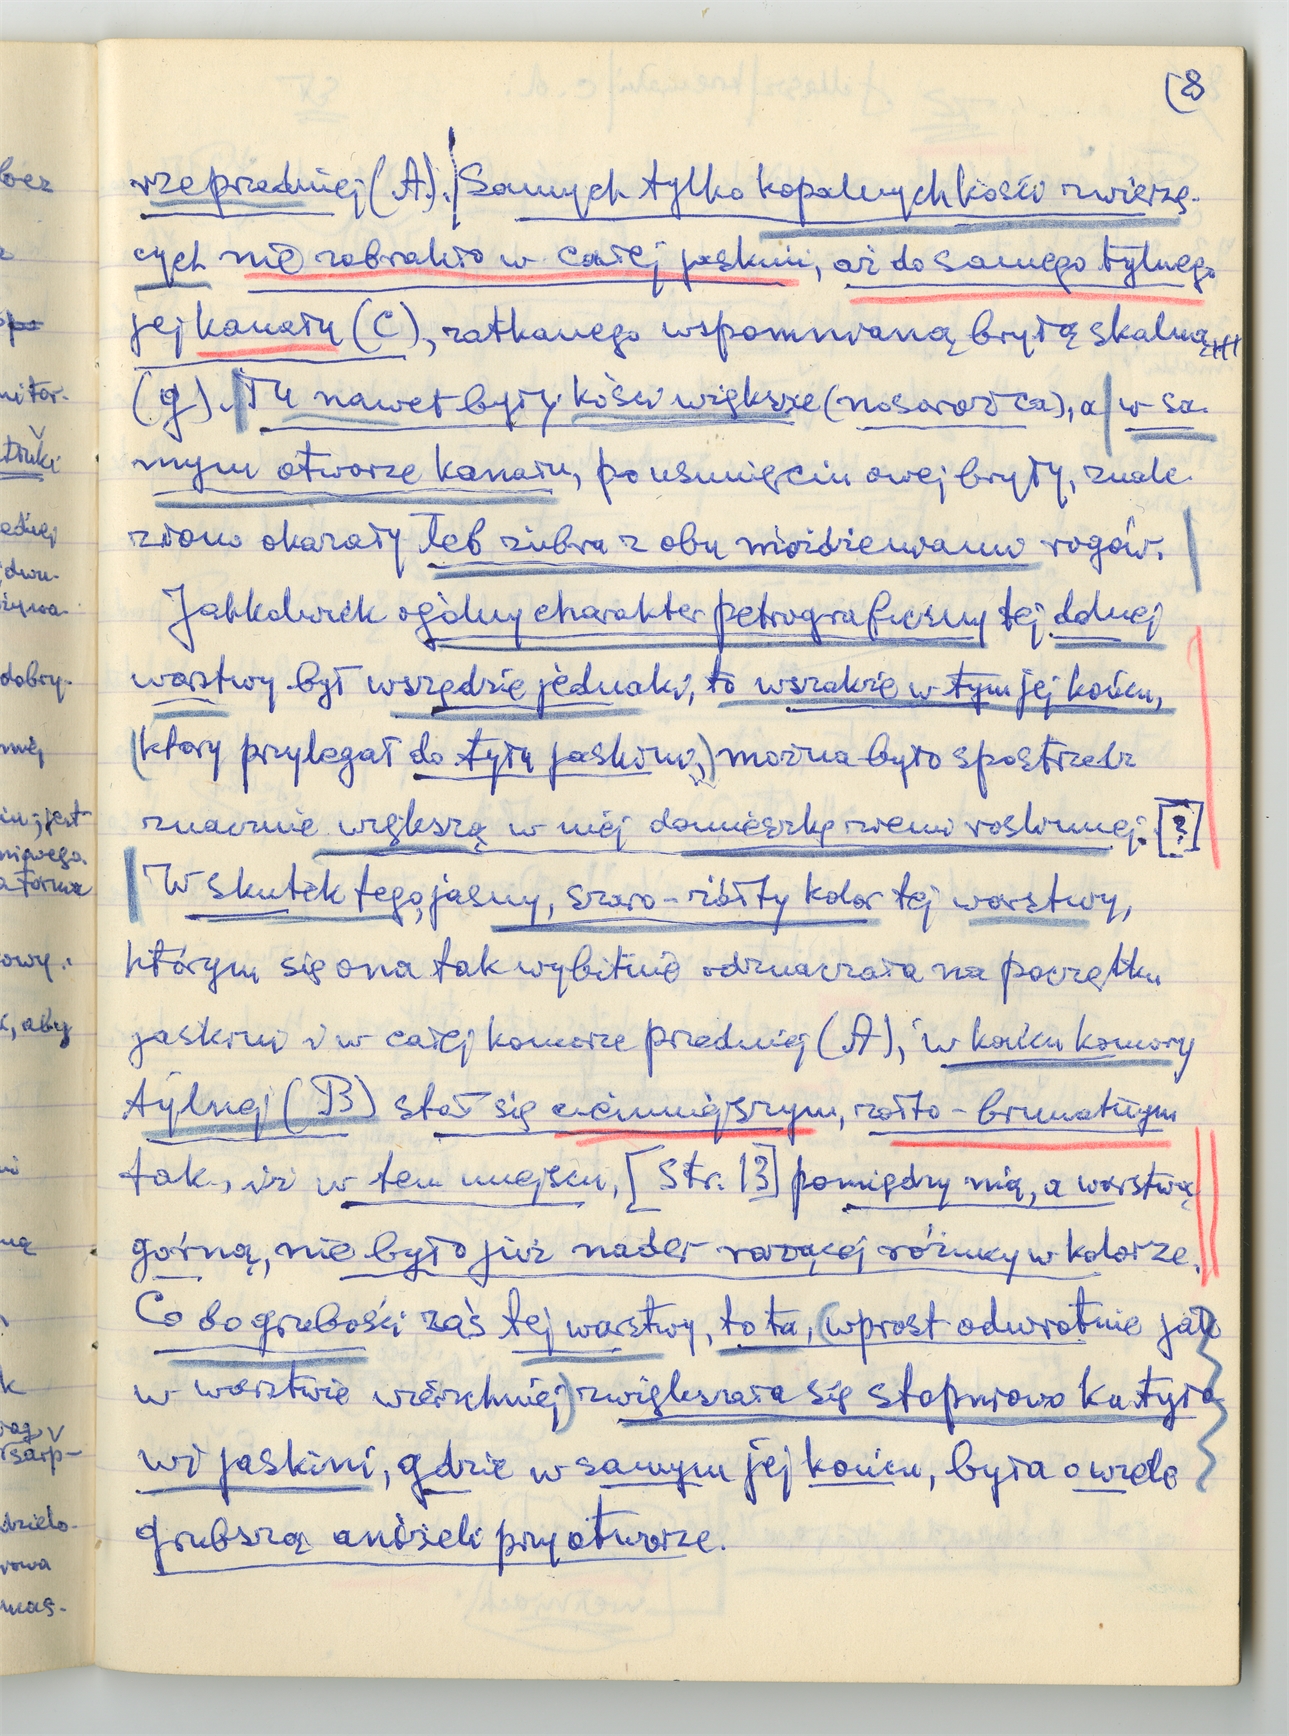 (8
rze przedniej (A). Samych tylko kopalnych kości zwierzę-
cych nie zabrakło w całej jaskini, aż do samego tylnego
jej kanału (C), zatkanego wspomnianą bryłą skalną
(g). Tu nawet były kości większe (nosorożca), a w sa-
mym otworze kanału, po usunięciu owej bryły, znale-
ziono okazały łeb żubra z obu możdżeniami rogów.
Jakkolwiek ogólny charakter petrograficzny tej dolnej
warstwy był wszędzie jednaki, to wszakże w tym jej końcu,
(który przylegał do tyłu jaskini,) można było spostrzedz
znacznie większą w niej domieszkę ziemi roślinnej. [?]
W skutek tego, jasny, szaro-żółty kolor tej warstwy,
którym się ona tak wybitnie odznaczała na początku
jaskini i w całej komorze przedniej (A), w końcu komory
tylnej (B) stał się ciemniejszym, żółto-brunatnym
tak, iż w tem miejscu, [Str. 13] pomiędzy nią, a warstwą
górną, nie było już nader rażącej różnicy w kolorze.
Co do grubości zaś tej warstwy, to ta, (wprost odwrotnie jak
w warstwie wierzchniej) zwiększała się stopniowo ku tyło
wi jaskini, gdzie w samym jej końcu, była o wiele
grubszą aniżeli przy otworze.
bez
nitor-
ednej
dwu-
żywa-
dobry-
niej
in; jest
niowego
a forma
owy.
k, aby
ną
k
dzielo-
rowa
mas-